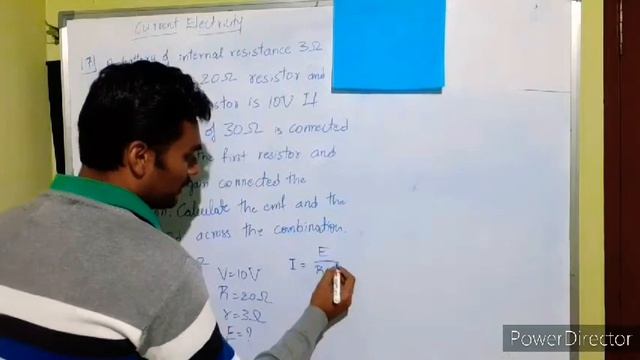 Current Electricity
17] A battery of internal resistance 3Ω
20Ω resistor and
is 10V If
of 30Ω is connected
the first resistor and
connected the
Calculate the emf and the
across the combination.
Ω
V=10V
I = E
R
R=20Ω
r=3Ω
E=?
PowerDirector